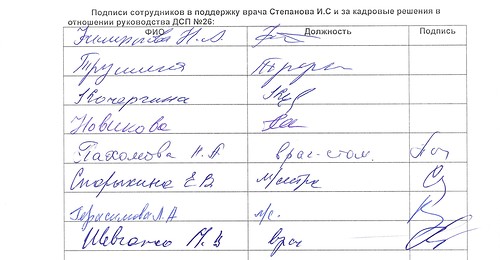 Подписи сотрудников в поддержку врача Степанова И.С и за кадровые решения в
отношении руководства ДСП №26:
ФИО Должность Подпись
Н.А.
Трушина
Кочергина
Новикова
Пахомова Н.А. врач-стом.
Спорыхина Е.В. м/сестра
Герасимова Л.А м/с.
Шевченко М.В врач